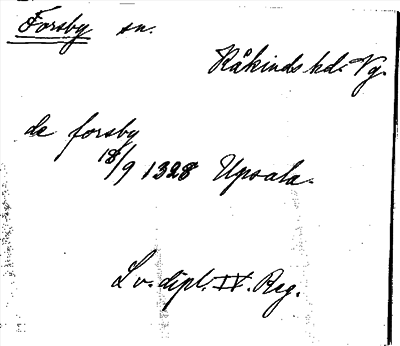 Forsby sn.
Kåkinds hd. Vg.
de forsby
18/9 1328 Upsala.
Sv. dipl. IV. Reg.